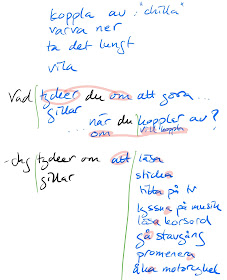 koppla av "chilla"
varva ner
ta det lungt
vila
Vad tycker du om att göra...
gillar
när du kopplar av?
om vill koppla
-Jag tycker om att läsa
gillar sticka
titta på tv
lyssna på musik
lösa korsord
gå stavgång
promenera
åka motorcykel